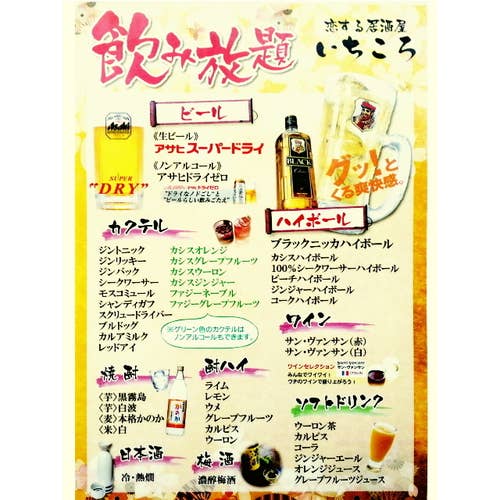 飲み放題
恋する居酒屋
いちころ
ビール
《生ビール》
アサヒスーパードライ
《ノンアルコール》
アサヒドライゼロ
"ドライなノドごし"と
"ビールらしい飲みごたえ"
SUPER
"DRY"
BLACK
グッ!と
くる爽快感。
カクテル
ジントニック
ジンリッキー
ジンバック
シークワーサー
モスコミュール
シャンディガフ
スクリュードライバー
ブルドッグ
カルアミルク
レッドアイ
カシスオレンジ
カシスグレープフルーツ
カシスウーロン
カシスジンジャー
ファジーネーブル
ファジーグレープフルーツ
※グリーン色のカクテルは
ノンアルコールもできます。
ハイボール
ブラックニッカハイボール
カシスハイボール
100%シークワーサーハイボール
ピーチハイボール
ジンジャーハイボール
コークハイボール
ワイン
サン・ヴァンサン(赤)
サン・ヴァンサン(白)
ワインセレクション
みんなでワイワイ!
ウチのワインで盛り上がろう!
サン・ヴァンサン
焼酎
〈芋〉黒霧島
〈芋〉白波
〈麦〉本格かのか
〈米〉白
酎ハイ
ライム
レモン
ウメ
グレープフルーツ
カルピス
ウーロン
ソフトドリンク
ウーロン茶
カルピス
コーラ
ジンジャーエール
オレンジジュース
グレープフルーツジュース
日本酒
冷・熱燗
梅酒
濃醇梅酒